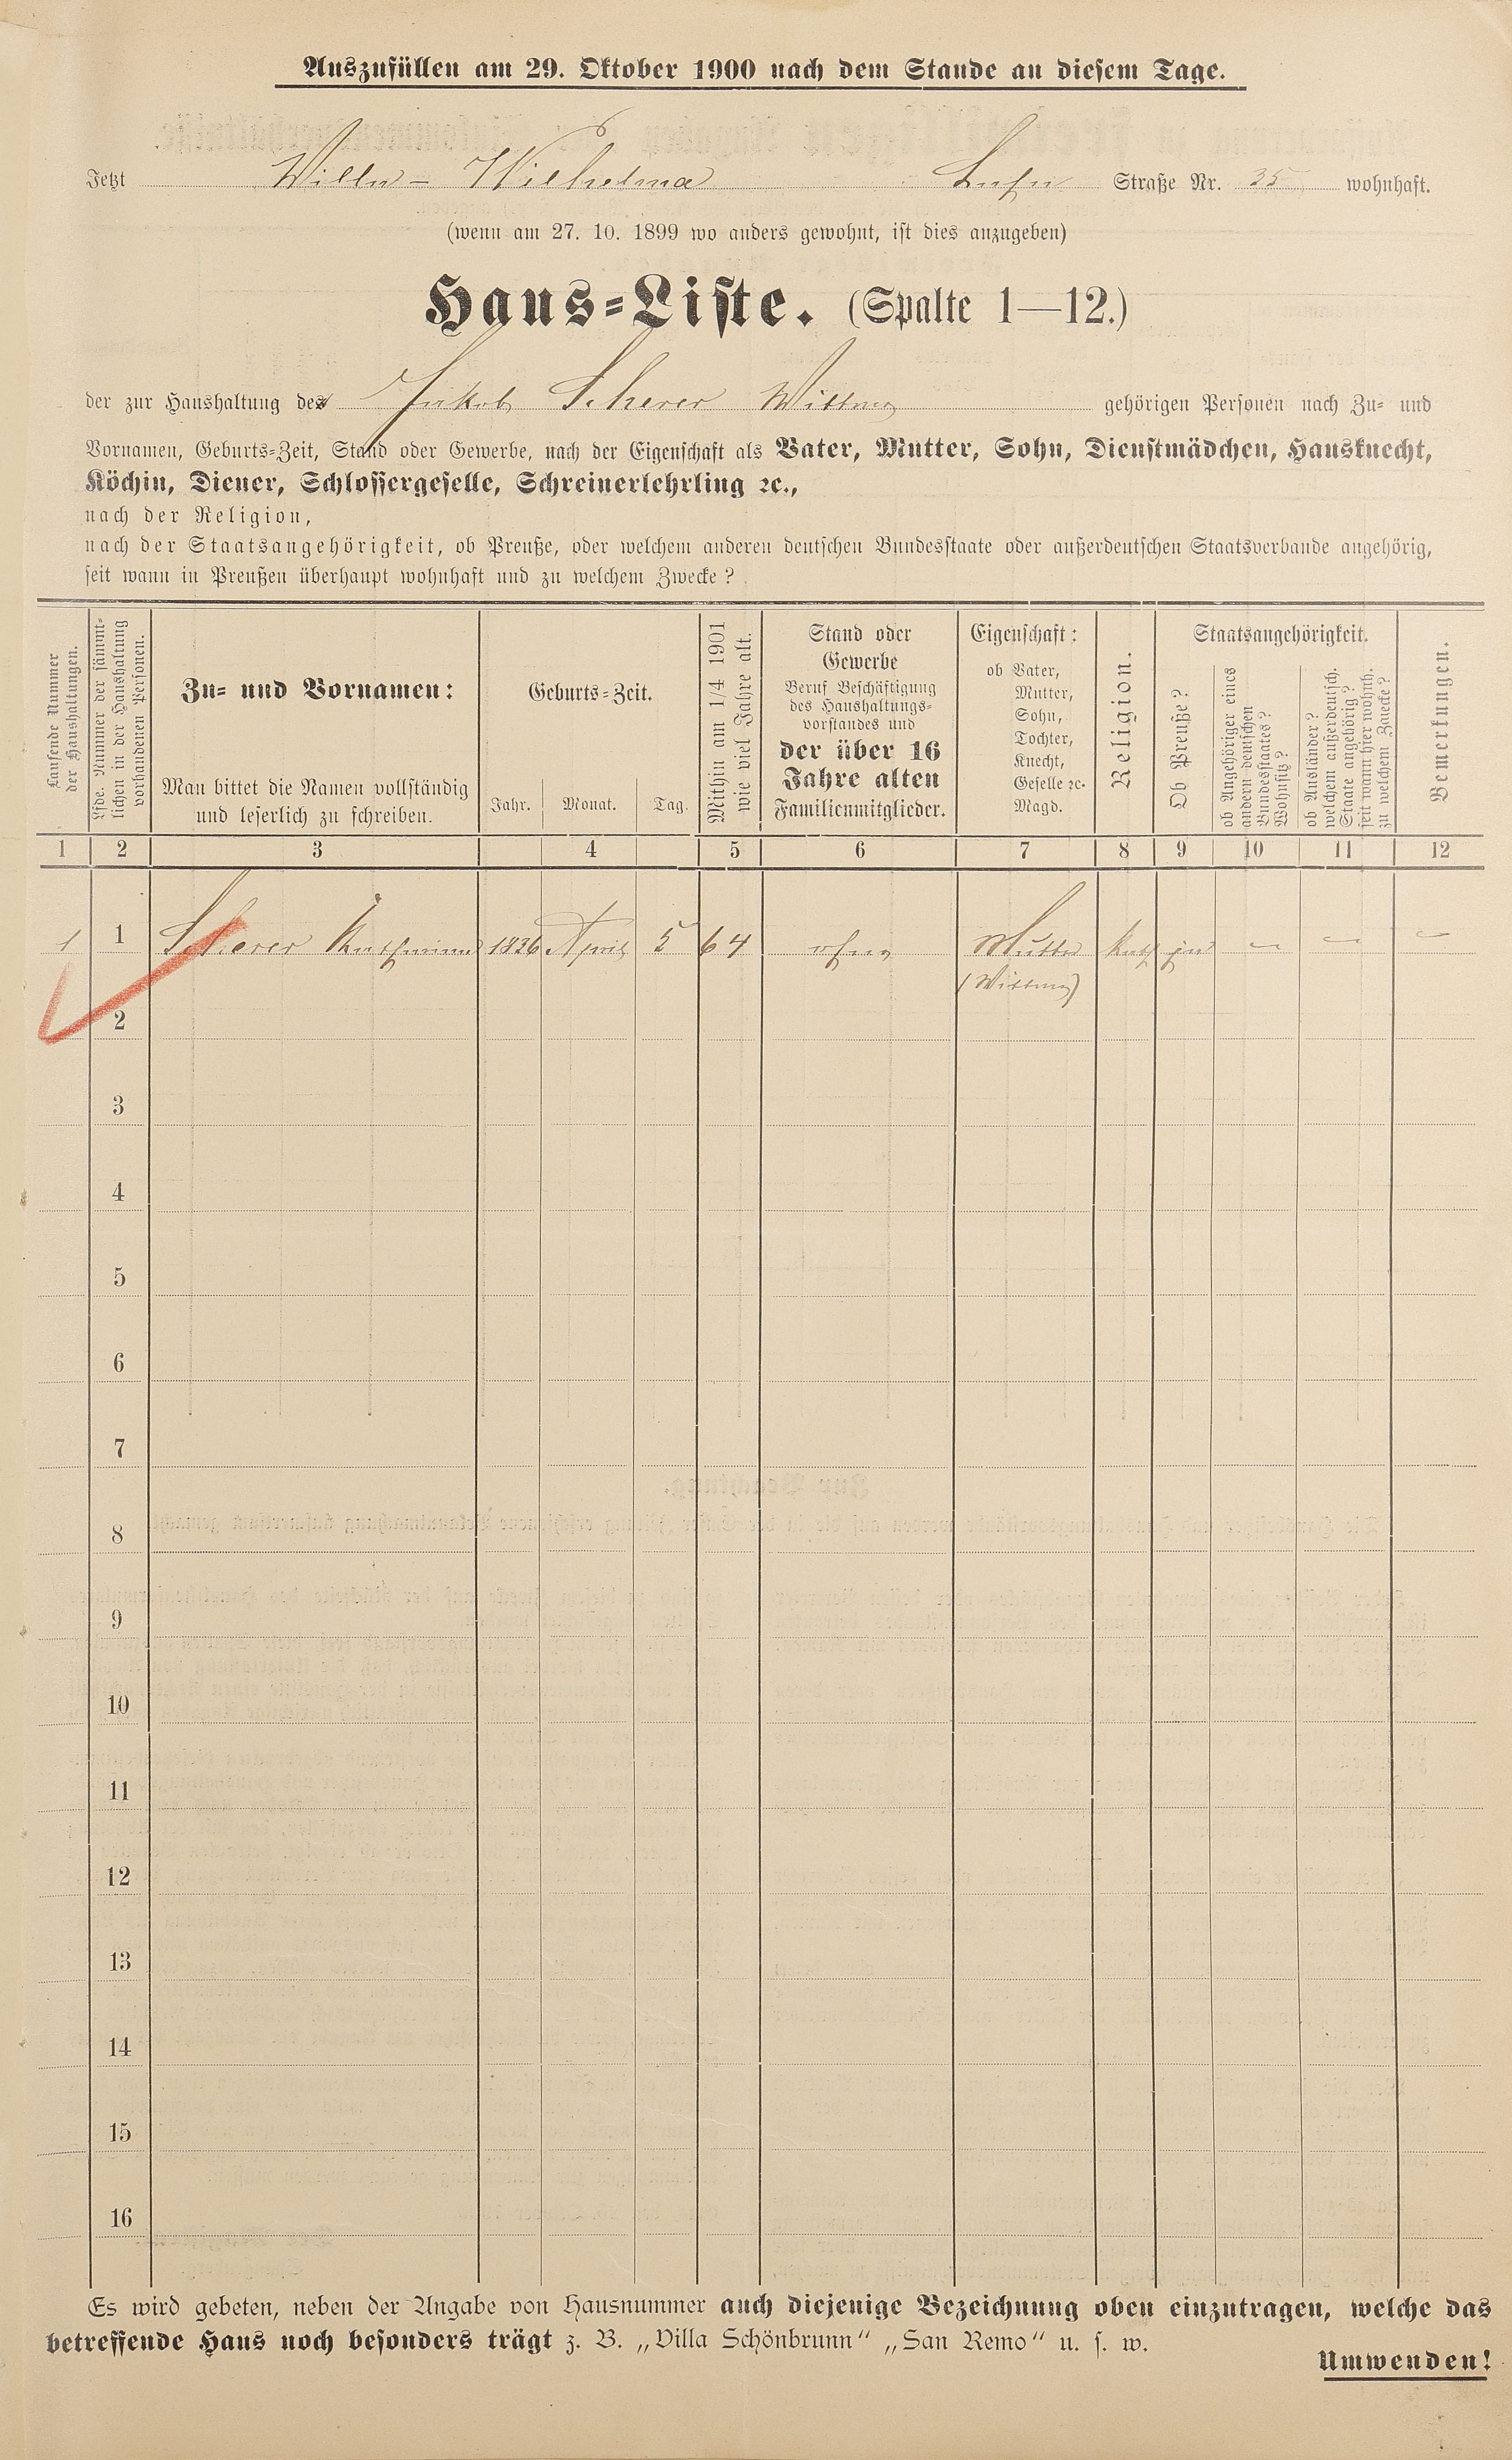 Auszufüllen am 29. Oktober 1900 nach dem Stande an diesem Tage.
Jetzt Villa - Wilhelma Straße Nr. 35 wohnhaft.
(wenn am 27. 10. 1899 wo anders gewohnt, ist dies anzugeben)
Haus-Liste. (Spalte 1—12.)
der zur Haushaltung des Jakob Scherer Wittwe gehörigen Personen nach Zu- und
Vornamen, Geburts-Zeit, Stand oder Gewerbe, nach der Eigenschaft als Vater, Mutter, Sohn, Dienstmädchen, Hausknecht,
Köchin, Diener, Schlossergeselle, Schreinerlehrling ꝛc.,
nach der Religion,
nach der Staatsangehörigkeit, ob Preuße, oder welchem anderen deutschen Bundesstaate oder außerdeutschen Staatsverbande angehörig,
seit wann in Preußen überhaupt wohnhaft und zu welchem Zwecke?
Laufende Nummer
der Haushaltungen.
Lfde. Nummer der sämmt-
lichen in der Haushaltung
vorhandenen Personen.
Zu- und Vornamen:
Man bittet die Namen vollständig
und leserlich zu schreiben.
Geburts-Zeit.
Jahr. Monat. Tag.
Mithin am 1/4 1901
wie viel Jahre alt.
Stand oder
Gewerbe
Beruf Beschäftigung
des Haushaltungs-
vorstandes und
der über 16
Jahre alten
Familienmitglieder.
Eigenschaft:
ob Vater,
Mutter,
Sohn,
Tochter,
Knecht,
Geselle ꝛc.
Magd.
Religion.
Staatsangehörigkeit.
Ob Preuße?
ob Angehöriger eines
andern deutschen
Bundesstaates?
Wohnsitz?
ob Ausländer?
welchem außerdeutsch.
Staate angehörig?
seit wann hier wohnh.
zu welchem Zwecke?
Bemerkungen.
1 2 3 4 5 6 7 8 9 10 11 12
1 1 Scherer Katharina 1836 April 5 64 ohne Mutter Kath ja — — —
(Wittwe)
2
3
4
5
6
7
8
9
10
11
12
13
14
15
16
Es wird gebeten, neben der Angabe von Hausnummer auch diejenige Bezeichnung oben einzutragen, welche das
betreffende Haus noch besonders trägt z. B. „Villa Schönbrunn“ „San Remo“ u. s. w.
Umwenden!